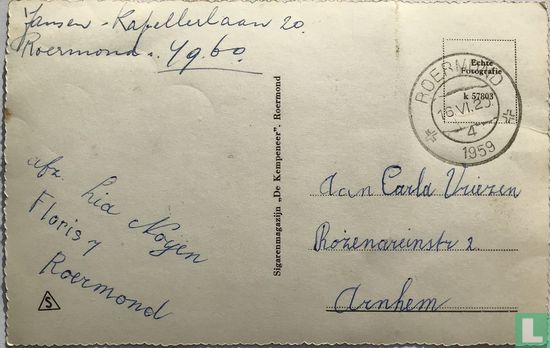 Jansen - Kapellerlaan 20.
Roermond. 4960
Echte
Fotografie
k 57803
ROERMOND
16.VI.2
4
1959
Sigarenmagazijn „De Kempeneer”, Roermond
afz. Lia Noijen
Floris 7
Roermond
Aan Carla Vriezen
Rozenareinstr 2.
Arnhem
S
L